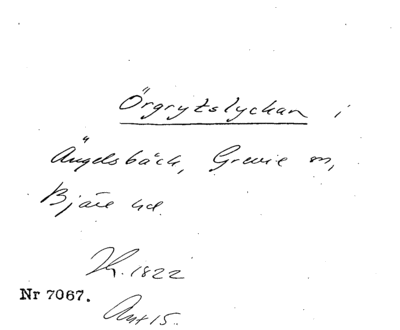 Örgrytslyckan i
Ängelsbäck, Grevie sn,
Bjäre hd.
Nr 7067.
1822